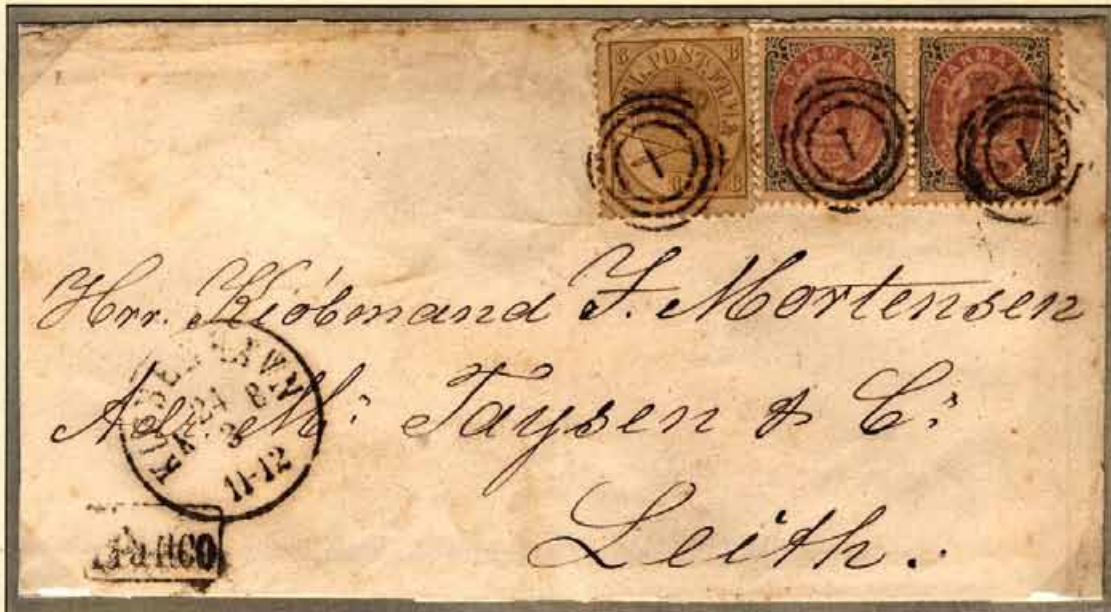 8 8
KGL. POST. FRM.
8 8
DANMARK
DANMARK
1
1
1
Hrr. Kjöbmand J. Mortensen
Adr. Mr. Taysen & Co.
Leith.
KIØBENHAVN
K. 24 B.
3
11-12
Franco